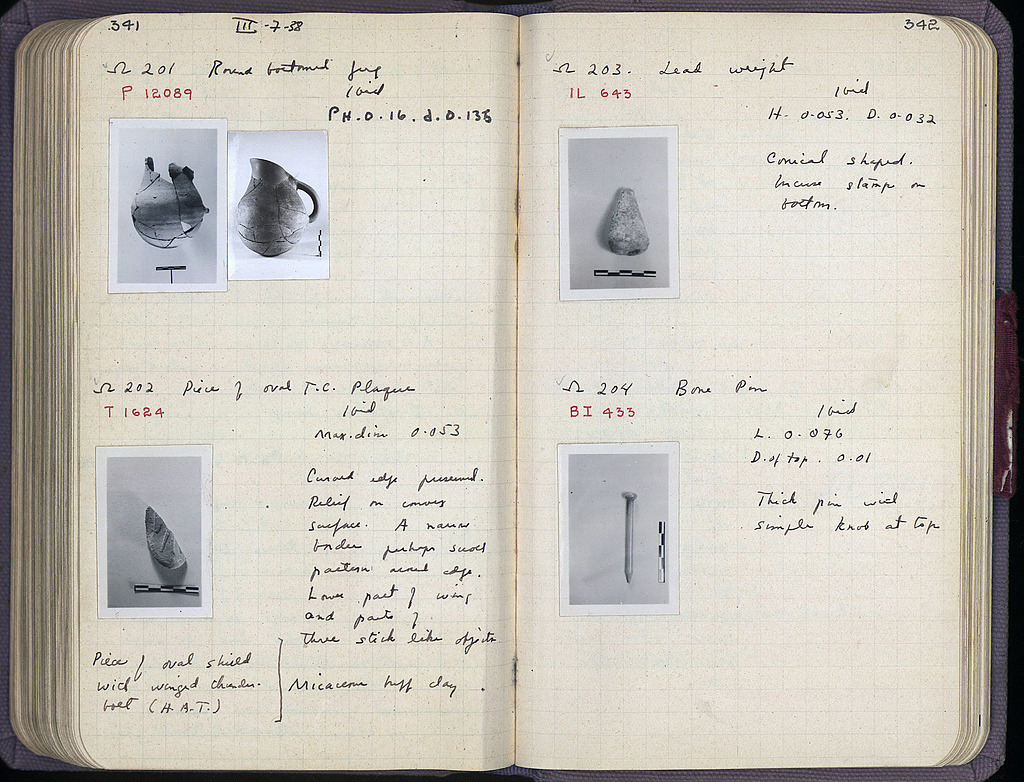 341
III -7-38
Ω 201 Round bottomed jug
P 12089
Ibid
P H. 0.16. d. 0.135
Ω 202 Piece of oval T.C. Plaque
T 1624
Ibid
Max. dim 0.053
Curved edge preserved.
Relief on convex
surface. A narrow
border perhaps scroll
pattern around edge.
Lower part of wing
and parts of
three stick like objects
Micaceous buff clay.
Piece of oval shield
with winged thunder-
bolt (H.A.T.)
342
Ω 203. Lead weight
IL 643
Ibid
H. 0.053. D. 0.032
Conical shaped.
Incuse stamp on
bottom.
Ω 204 Bone Pin
BI 433
Ibid
L. 0.076
D. of top. 0.01
Thick pin with
simple knob at top